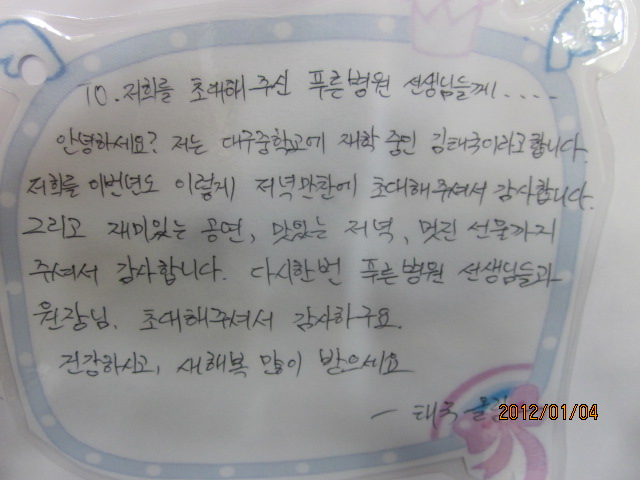 TO. 저희를 초대해 주신 푸른병원 선생님들께....
안녕하세요? 저는 대구중학교에 재학 중인 김태국이라고합니다.
저희를 이번년도 이렇게 저녁만찬에 초대해주셔서 감사합니다.
그리고 재미있는 공연, 맛있는 저녁, 멋진 선물까지
주셔서 감사합니다. 다시한번 푸른병원 선생님들과
원장님. 초대해주셔서 감사하구요.
건강하시고, 새해복 많이 받으세요
- 태국 올림
2012/01/04